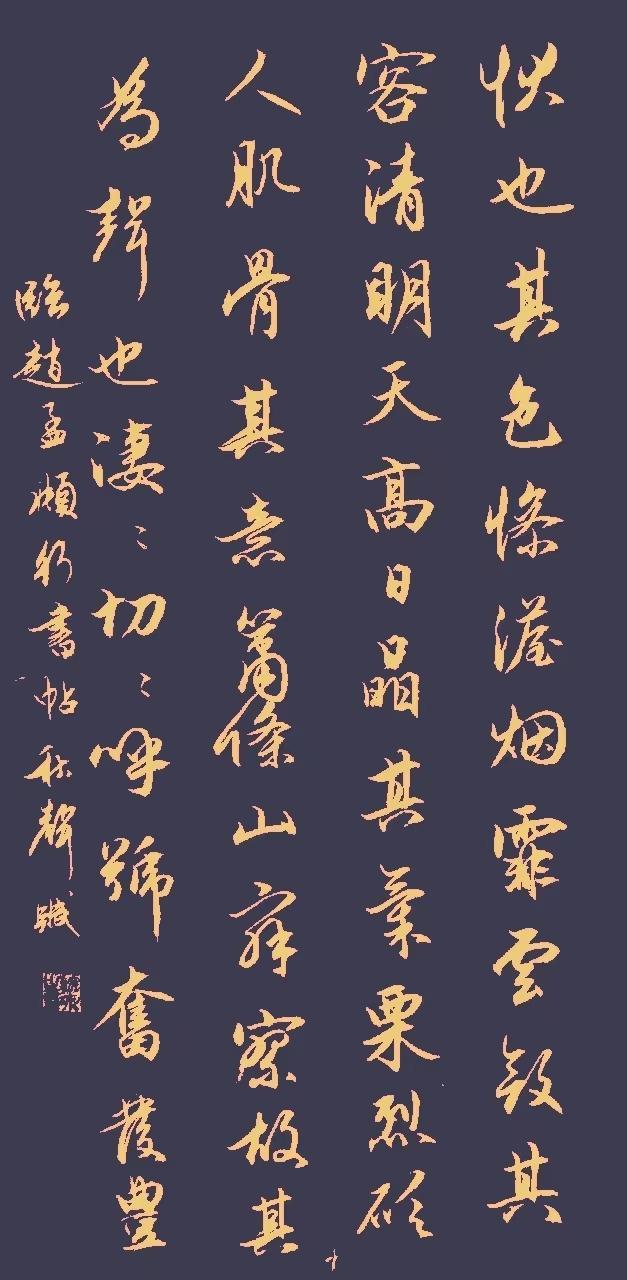 状也其色慘澹烟霏雲斂其
容清明天高日晶其氣栗烈砭
人肌骨其意蕭條山寂寥故其
為聲也淒〻切〻呼號奮發豐
臨趙孟頫行書帖秋聲賦